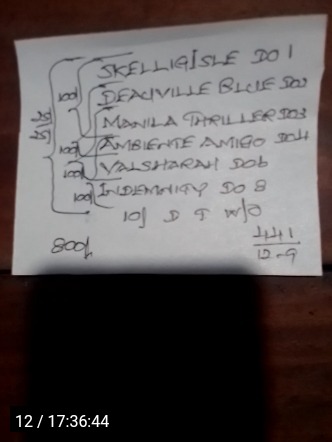 SKELLIGISLE DO 1
DEAUVILLE BLUE DO2
MANILA THRILLER DO3
AMBIENTE AMIGO DO4
VALSHARAH DO6
INDEMNITY DO 8
10/ D T W/O
100/
100/
100/
100/
441
12-9
12 / 17:36:44